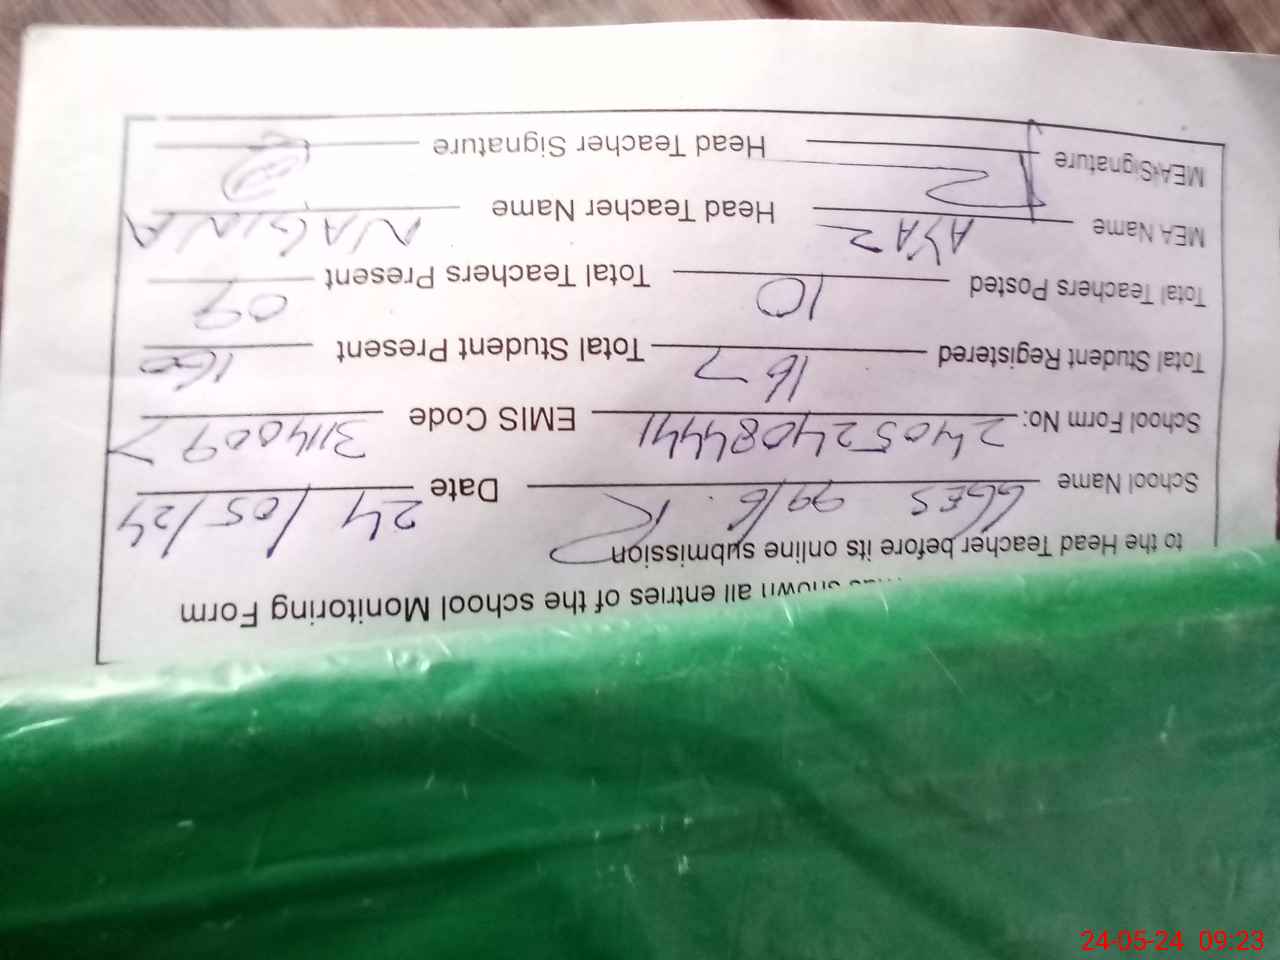 shown all entries of the school Monitoring Form
to the Head Teacher before its online submission
School Name GGES 99/6.R Date 24/05/24
School Form No: 240524084441 EMIS Code 31140097
Total Student Registered 167 Total Student Present 160
Total Teachers Posted 10 Total Teachers Present 09
MEA Name AYAZ Head Teacher Name NAGINA
MEA Signature Head Teacher Signature
24-05-24 09:23